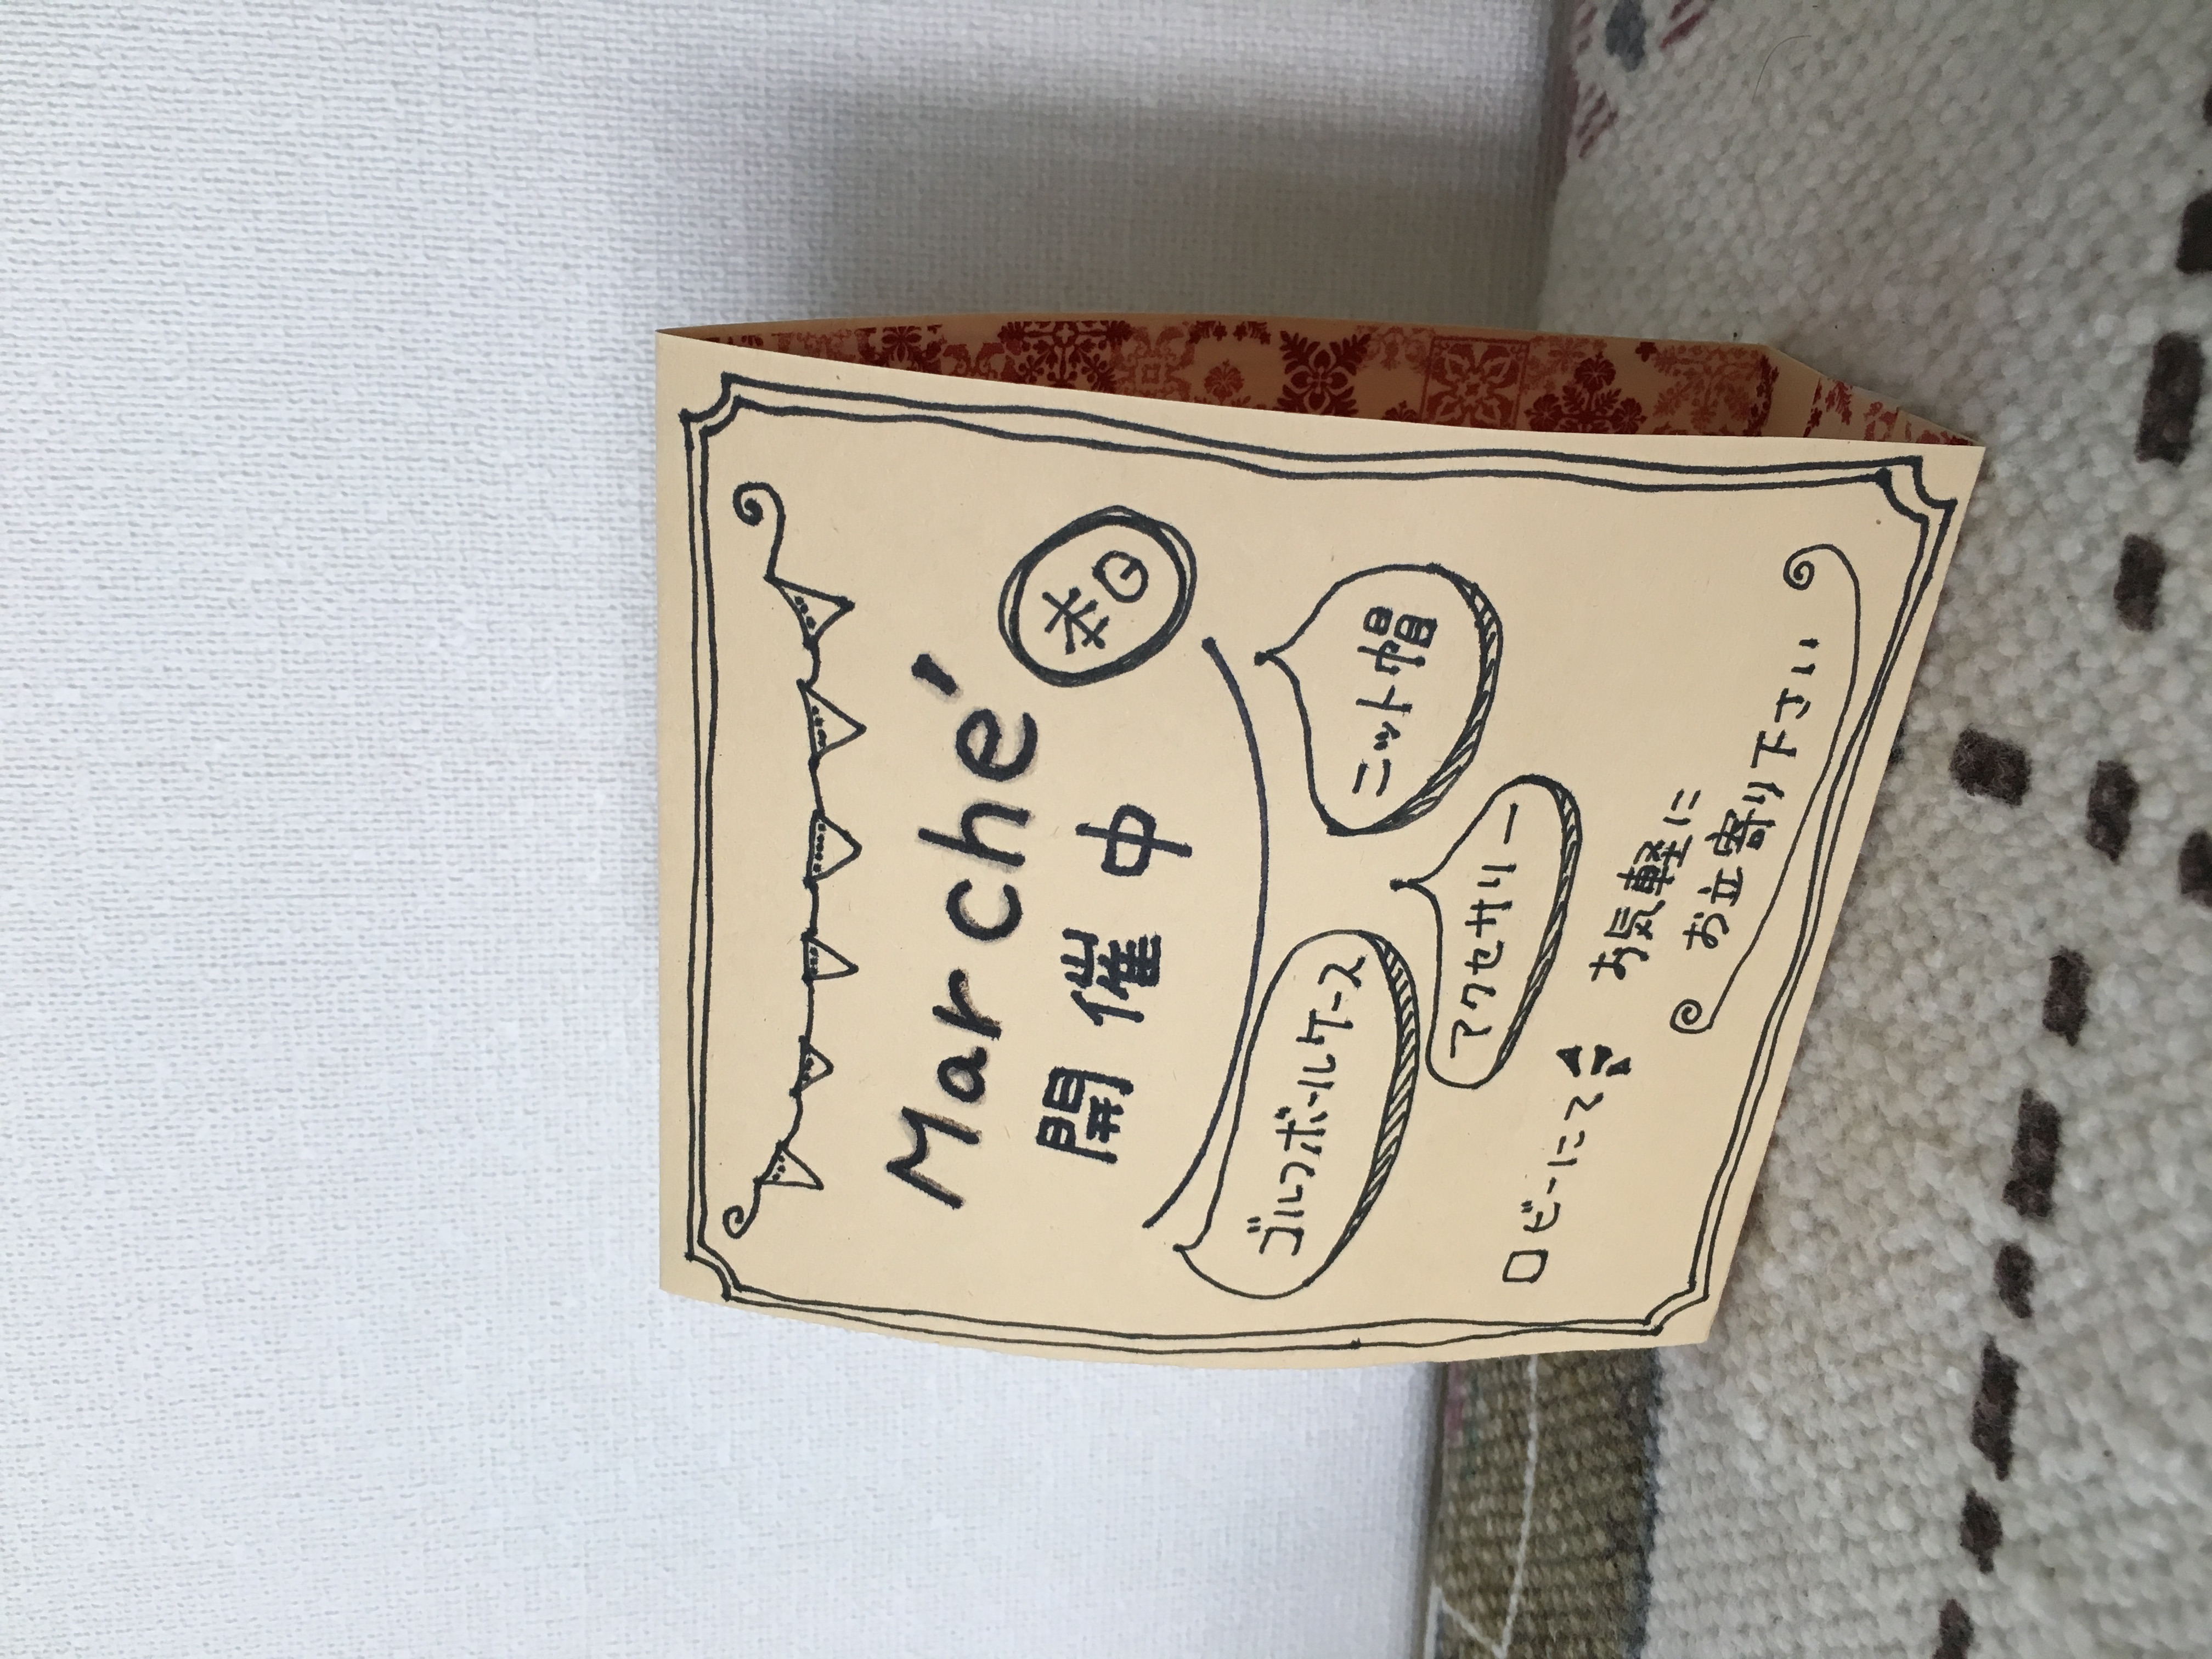 Marché
開催中
本日
ゴルフボールケース
ニット帽
アクセサリー
ロビーにて
お気軽に
お立寄り下さい